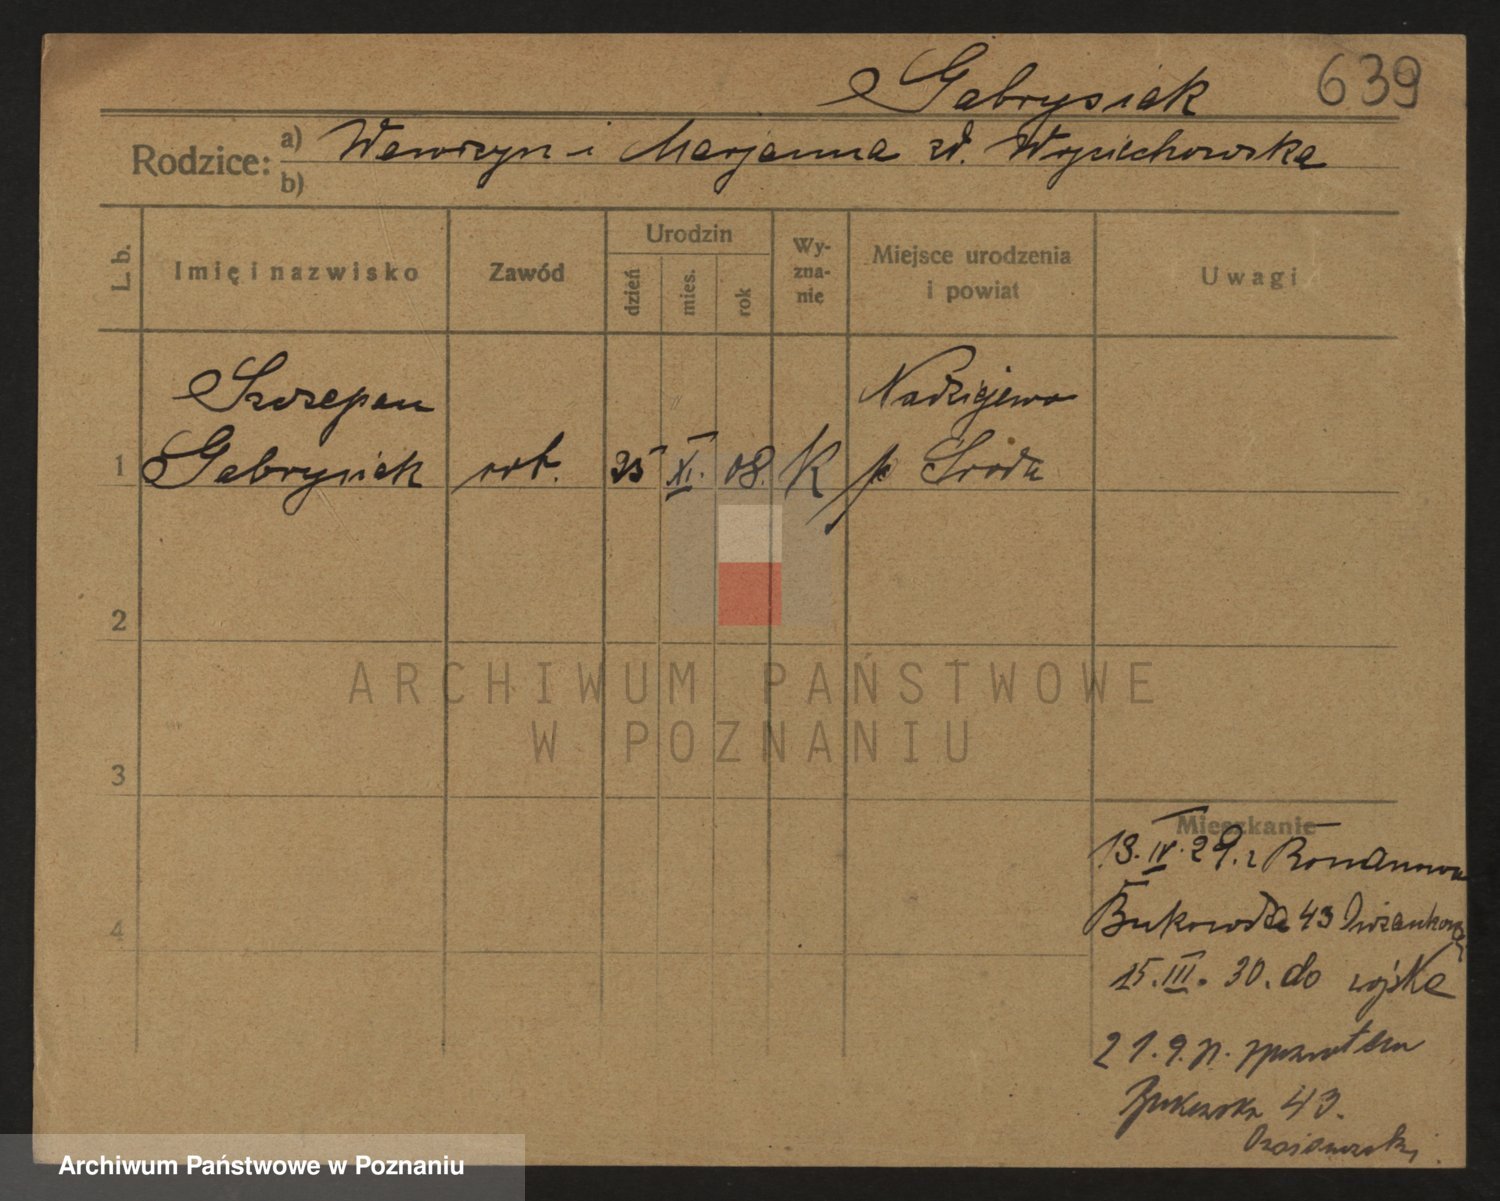 Gabrysiak 639
Rodzice: a) Wawrzyn i Marjanna zd. Wojciechowska
b)
L. b. Imię i nazwisko Zawód Urodzin dzień mies. rok Wy-zna-nie Miejsce urodzenia i powiat Uwagi
Szczepan Nadziejewo
1 Gabrysiak rob. 25 XI. 08. K p Środa
2
ARCHIWUM PAŃSTWOWE
W POZNANIU
3
Mieszkanie
13. IV. 29. z
4 Bukowska 43
15. III. 30. do wojska
21. 9. powrotem
Bukowska 43.
Archiwum Państwowe w Poznaniu